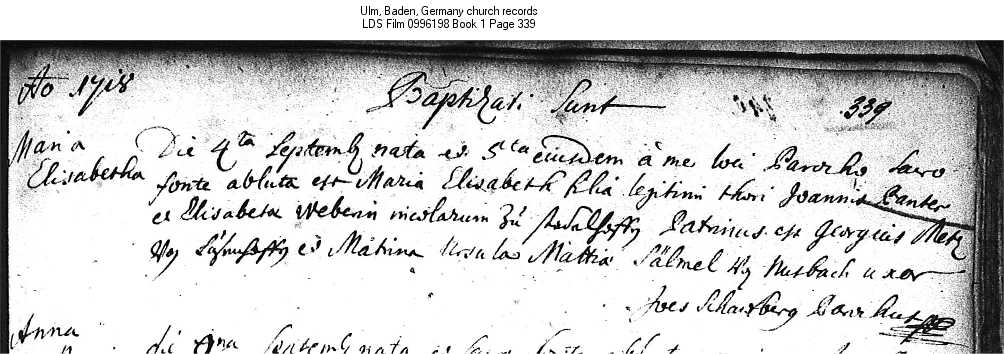 Ulm, Baden, Germany church records
LDS Film 0996198 Book 1 Page 339
Ao 1718 Baptizati Sunt 339
Maria Die 4ta Septemb nata et 5ta eiusdem à me loci Parocho Sacro
Elisabetha fonte abluta est Maria Elisabeth filia legitimi thori Joannis Panter
et Elisabeta Weberin incolarum Zu Patrinus est Georgius Metz
et Matrina Ursula Mattia Sälmel Nusbach uxor
Parochus
Anna
die Septemb nata